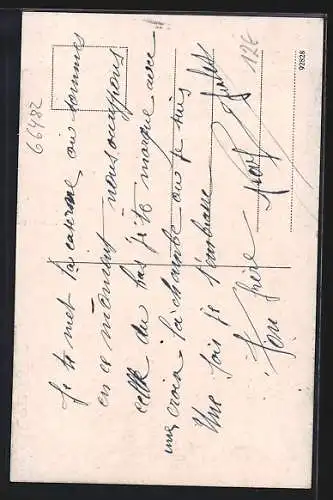 Je te met la caserne, ou sommes
en ce moment nous occupons
celle du bas je te marque avec
une croix la chambre ou je suis
Une fois je t'embrasse
Ton frère
66482
126
92828